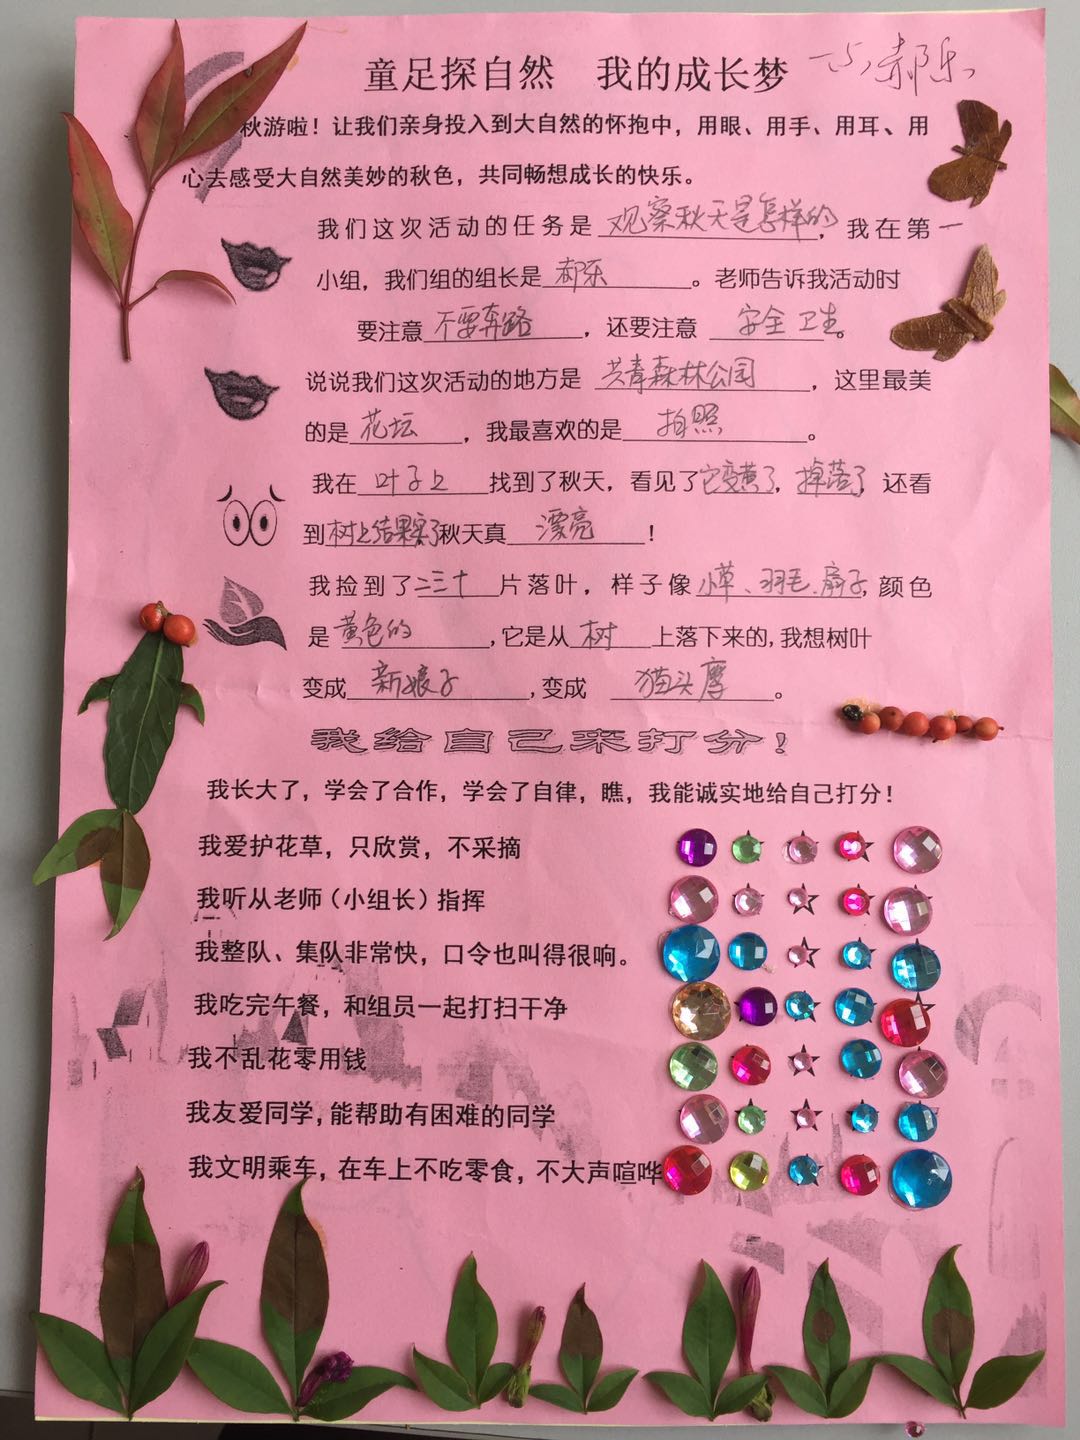 童足探自然 我的成长梦 一5,郝乐
秋游啦！让我们亲身投入到大自然的怀抱中，用眼、用手、用耳、用
心去感受大自然美妙的秋色，共同畅想成长的快乐。
我们这次活动的任务是观察秋天是怎样的，我在第一
小组，我们组的组长是郝乐。老师告诉我活动时
要注意不要奔跑，还要注意 安全 卫生。
说说我们这次活动的地方是 共青森林公园，这里最美
的是花坛，我最喜欢的是拍照。
我在叶子上找到了秋天，看见了它变黄了，掉落了，还看
到树上结果实了秋天真漂亮！
我捡到了二三十片落叶，样子像小草、羽毛、扇子，颜色
是黄色的，它是从树上落下来的，我想树叶
变成新娘子，变成 猫头摩。
我给自己来打分！
我长大了，学会了合作，学会了自律，瞧，我能诚实地给自己打分！
我爱护花草，只欣赏，不采摘
我听从老师（小组长）指挥
我整队、集队非常快，口令也叫得很响。
我吃完午餐，和组员一起打扫干净
我不乱花零用钱
我友爱同学，能帮助有困难的同学
我文明乘车，在车上不吃零食，不大声喧哗